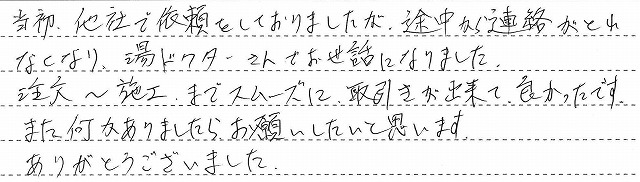 当初、他社で依頼をしておりましたが、途中から連絡がとれ
なくなり、湯ドクターさんでお世話になりました。
注文～施工までスムーズに、取引きが出来て、良かったです。
また何かありましたら、お願いしたいと思います。
ありがとうございました。